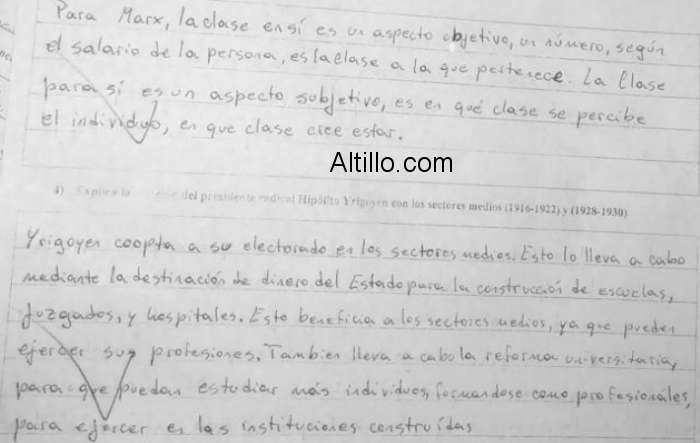 Para Marx, la clase en sí es un aspecto objetivo, un número, según
el salario de la persona, es la clase a la que pertenece. La Clase
para sí es un aspecto subjetivo, es en qué clase se percibe
el individuo, en que clase cree estar.
Altillo.com
4) Explica la del presidente radical Hipólito Yrigoyen con los sectores medios (1916-1922) y (1928-1930)
Yrigoyen coopta a su electorado en los sectores medios. Esto lo lleva a cabo
mediante la destinación de dinero del Estado para la construcción de escuelas,
juzgados, y hospitales. Esto beneficia a los sectores medios, ya que pueden
ejercer sus profesiones. Tambien lleva a cabo la reforma universitaria,
para que puedan estudiar más individuos, formandose como profesionales,
para ejercer en las instituciones construídas